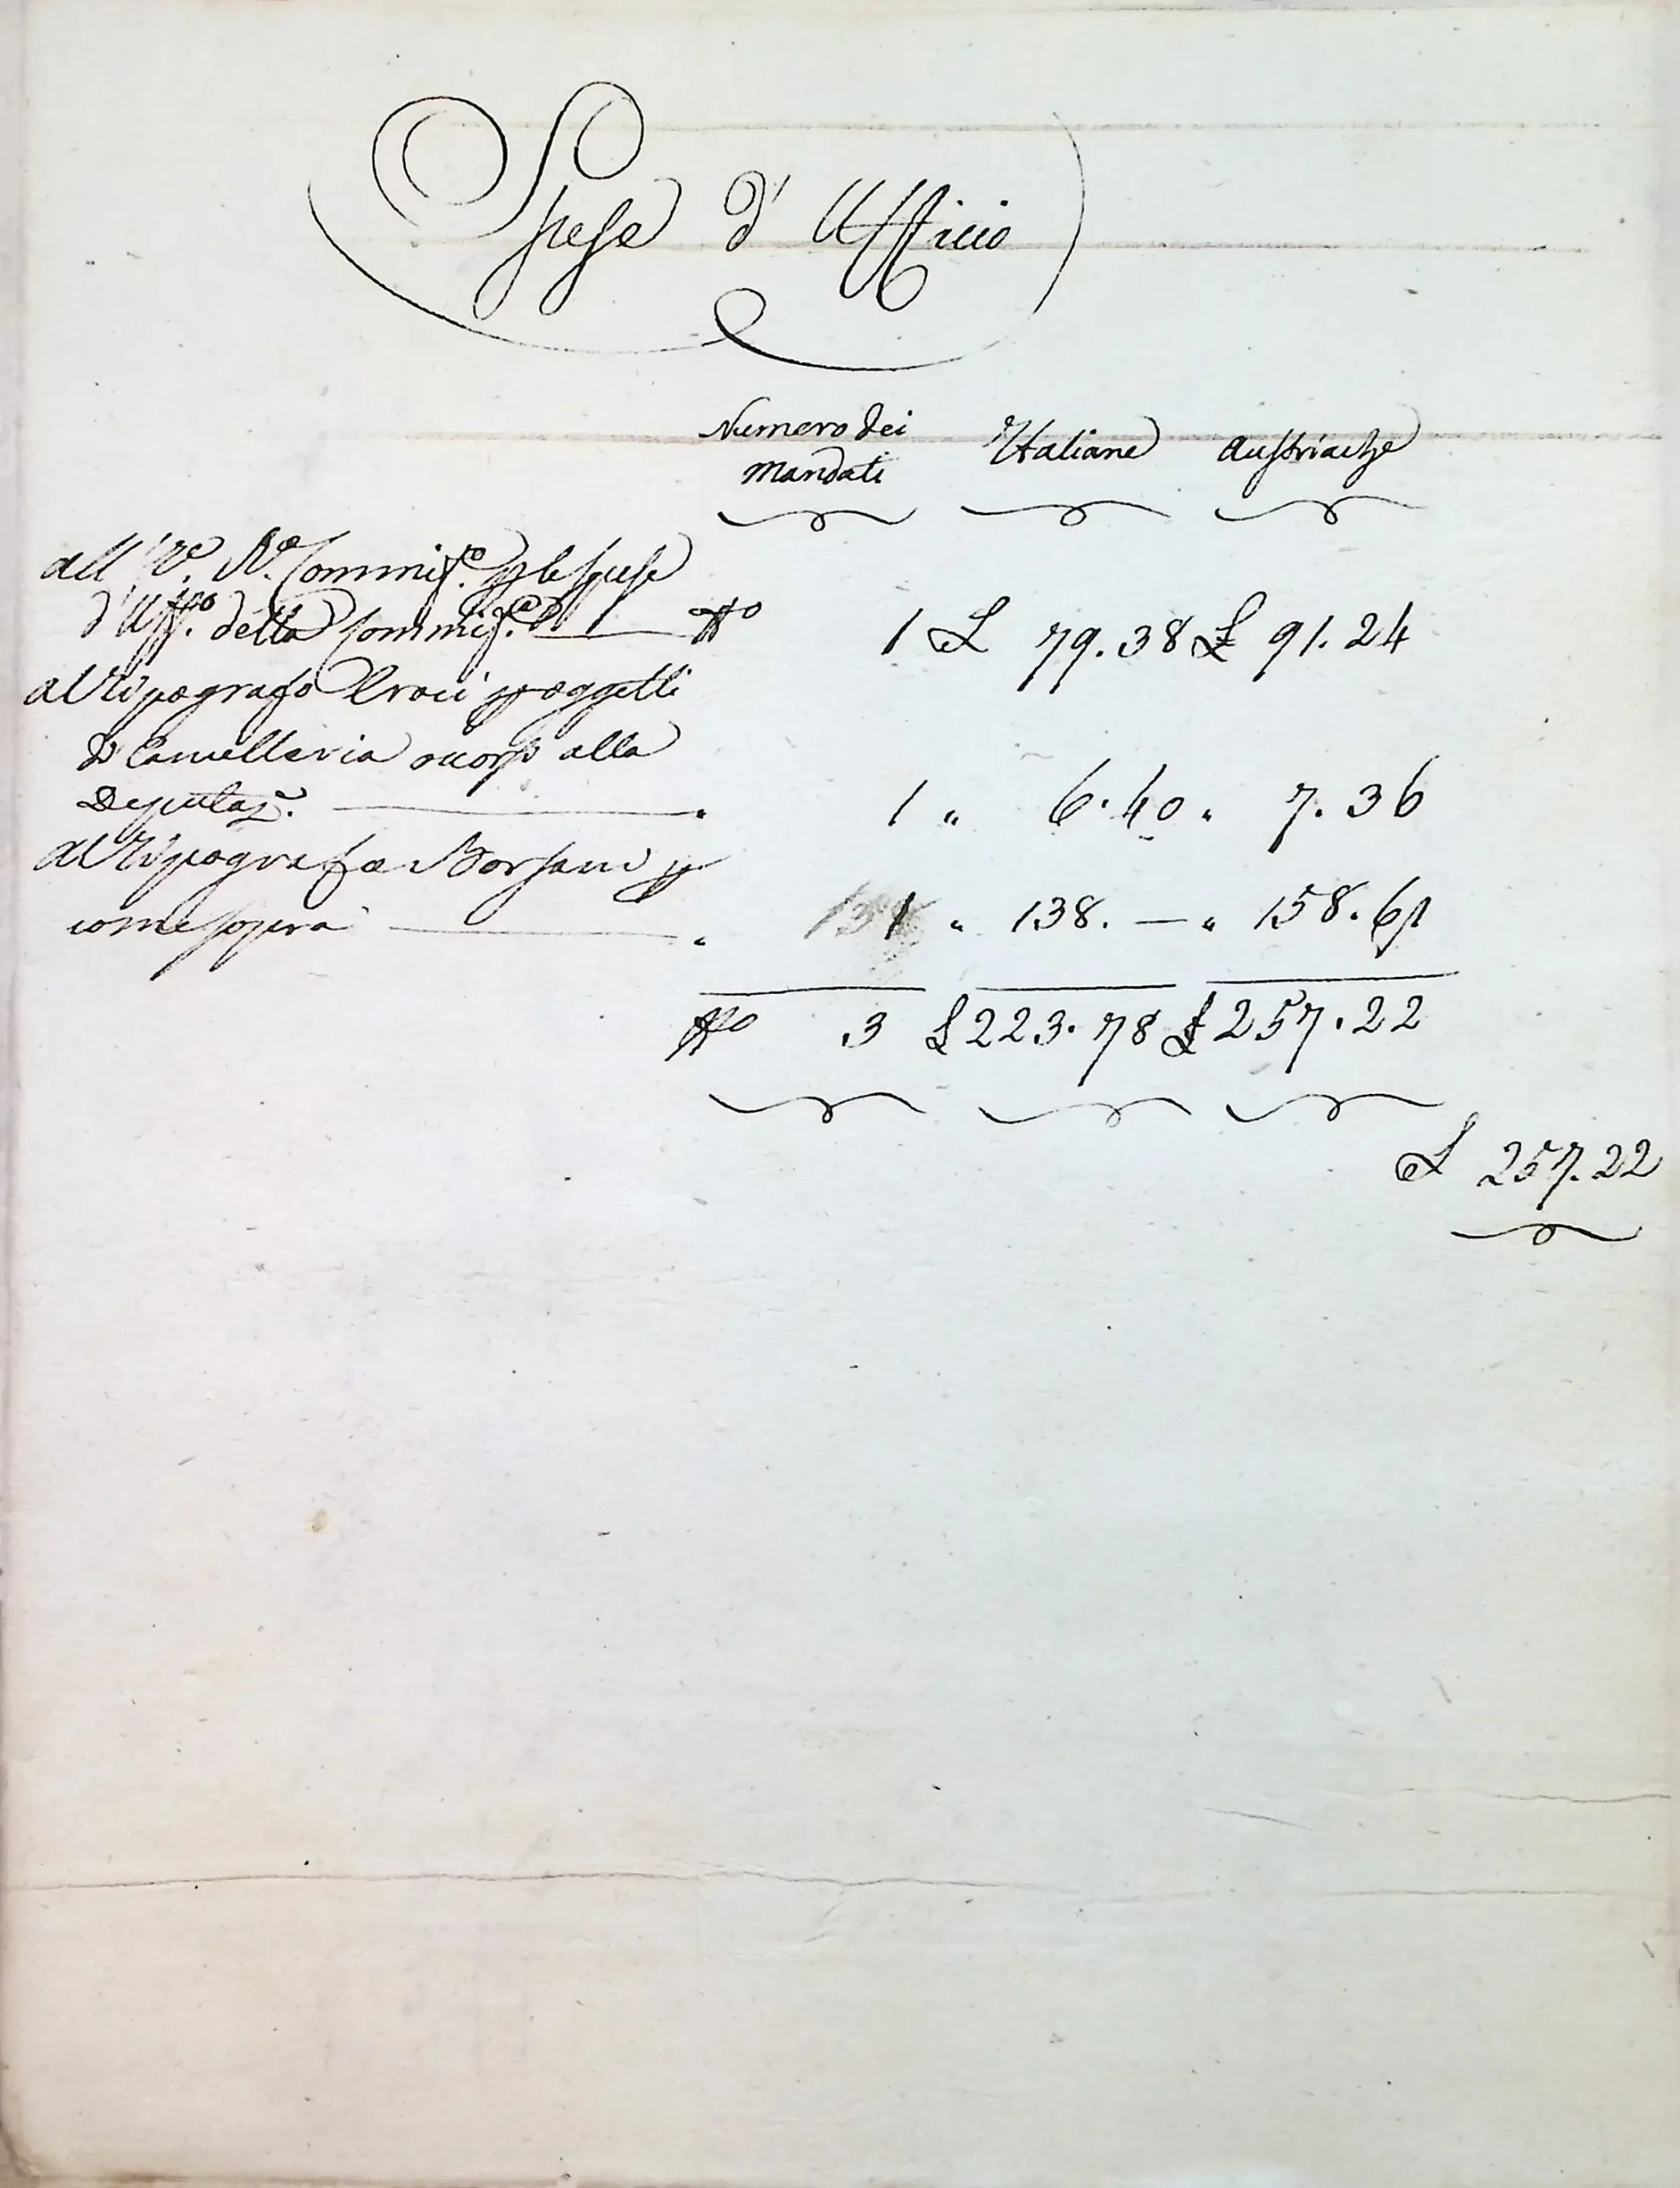 Spese d'Ufficio
Numero dei Mandati Italiane Austriache
all'I. R. Commiss.o p le spese
d'Uff.o della Commiss.a N.o 1 £ 79.38 £ 91.24
al Tipografo Croci p oggetti
di Cancelleria occorsi alla
Deputaz.e " 1 " 6.40 " 7.36
al Tipografo Borsani p
come sopra " 1 " 138. — " 158.61
N.o 3 £ 223.78 £ 257.22
£ 257.22